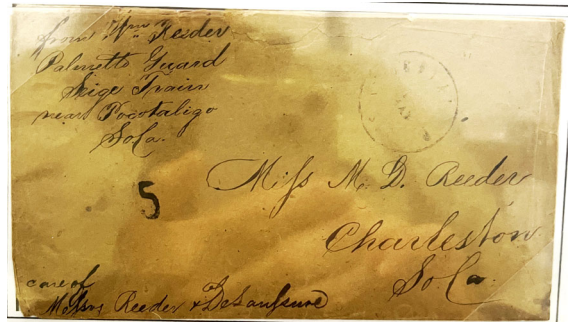 from Wm Reeder
Palmetto Guard
Seige Train
near Pocotaligo
So Ca.
5
Miss M. D. Reeder
Charleston
So. Ca.
care of
Messrs Reeder & DeSaussure